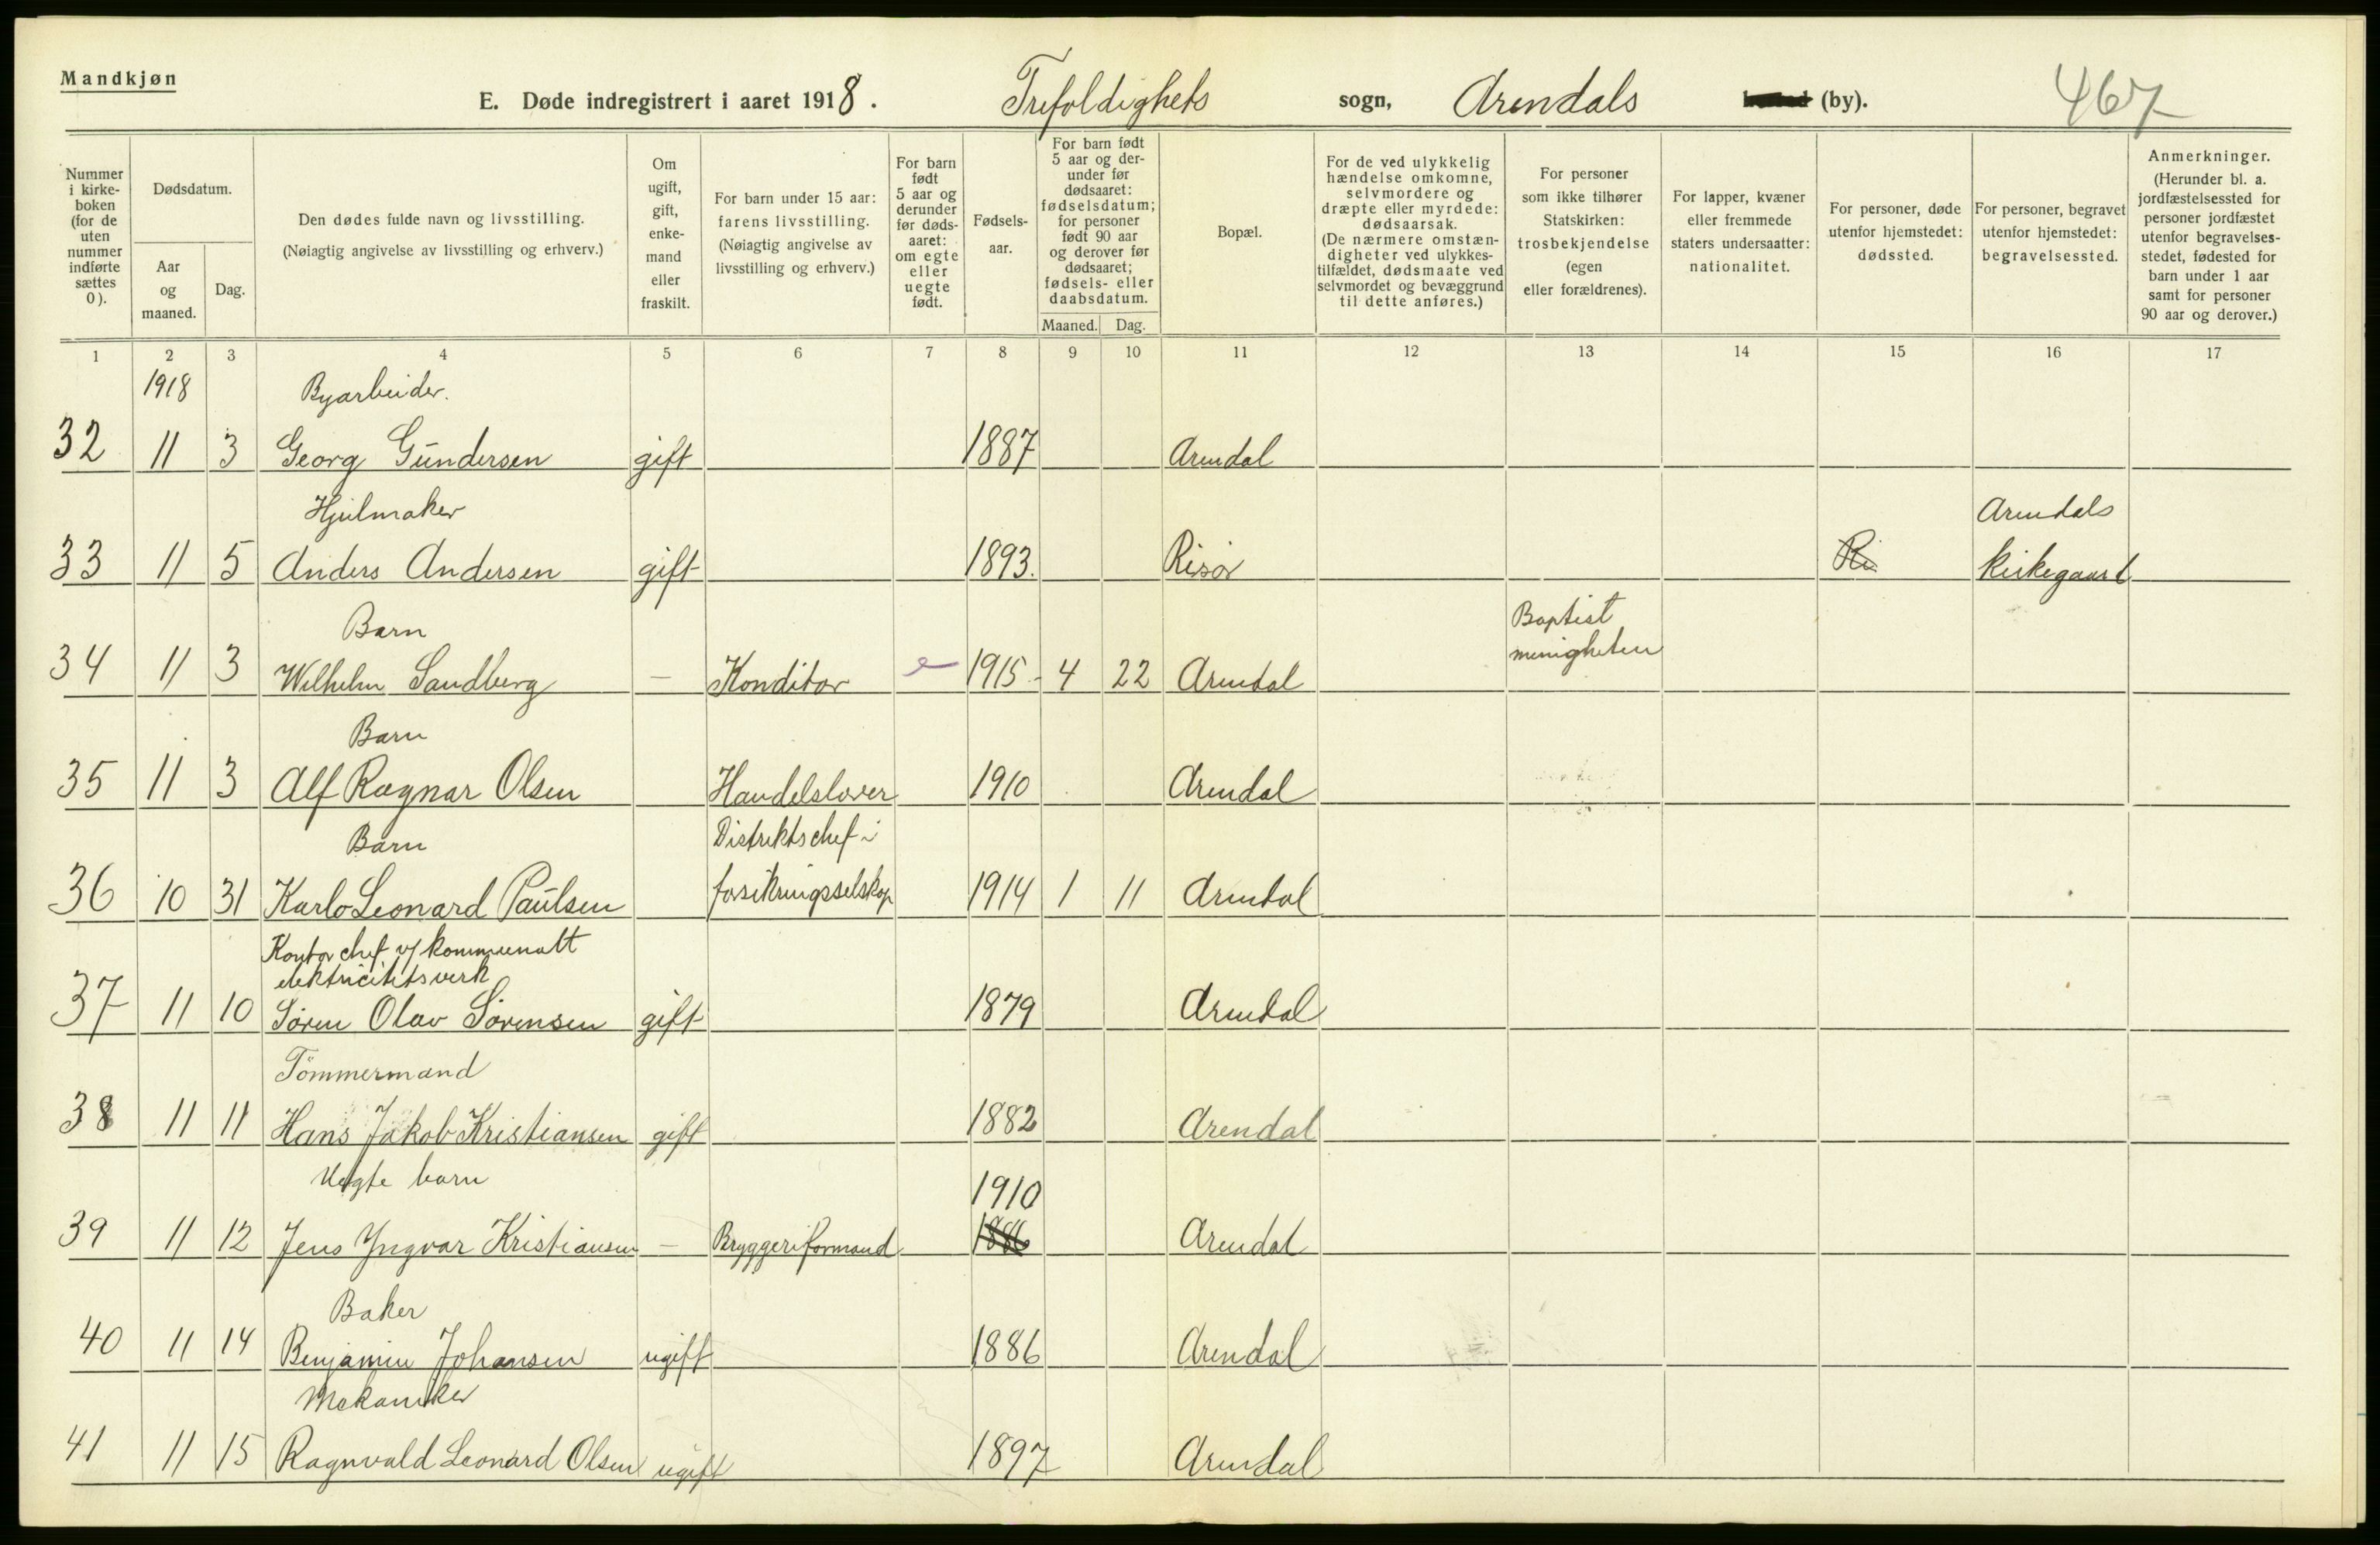 Mandkjøn
E. Døde indregistrert i aaret 1918. Trefoldighets sogn, Arendals (by). 467
Nummer i kirke-boken (for de uten nummer indførte sættes 0).
Dødsdatum.
Aar og maaned.
Dag.
Den dødes fulde navn og livsstilling.
(Nøiagtig angivelse av livsstilling og erhverv.)
Om ugift, gift, enke-mand eller fraskilt.
For barn under 15 aar: farens livsstilling. (Nøiagtig angivelse av livsstilling og erhverv.)
For barn født 5 aar og derunder før døds-aaret: om egte eller uegte født.
Fødsels-aar.
For barn født 5 aar og der-under før dødsaaret: fødselsdatum; for personer født 90 aar og derover før dødsaaret; fødsels- eller daabsdatum.
Maaned. Dag.
Bopæl.
For de ved ulykkelig hændelse omkomne, selvmordere og dræpte eller myrdede: dødsaarsak. (De nærmere omstæn-digheter ved ulykkes-tilfældet, dødsmaate ved selvmordet og bevæggrund til dette anføres.)
For personer som ikke tilhører Statskirken: trosbekjendelse (egen eller forældrenes).
For lapper, kvæner eller fremmede staters undersaatter: nationalitet.
For personer, døde utenfor hjemstedet: dødssted.
For personer, begravet utenfor hjemstedet: begravelsessted.
Anmerkninger. (Herunder bl. a. jordfæstelsessted for personer jordfæstet utenfor begravelses-stedet, fødested for barn under 1 aar samt for personer 90 aar og derover.)
1 2 3 4 5 6 7 8 9 10 11 12 13 14 15 16 17
1918 Byarbeider.
32 11 3 Georg Gundersen gift 1887 Arendal
Hjulmaker Arendals
33 11 5 Anders Andersen gift 1893. Risør Ri kirkegaard
Barn Baptist
menigheten
34 11 3 Wilhelm Sandberg — Konditor e 1915 4 22 Arendal
Barn
35 11 3 Alf Ragnar Olsen Handelslærer 1910 Arendal
Barn Distriktschef i
36 10 31 Karlo Leonard Paulsen forsikringsselskap 1914 1 11 Arendal
Kontorchef v/ kommunalt
elektricitetsverk
37 11 10 Søren Olav Sørensen gift 1879 Arendal
Tømmermand
38 11 11 Hans Jakob Kristiansen gift 1882 Arendal
Uegte barn 1910
39 11 12 Jens Yngvar Kristiansen — Bryggeriformand 1886 Arendal
Baker
40 11 14 Benjamin Johansen ugift 1886 Arendal
Mekaniker
41 11 15 Ragnvald Leonard Olsen ugift 1897 Arendal